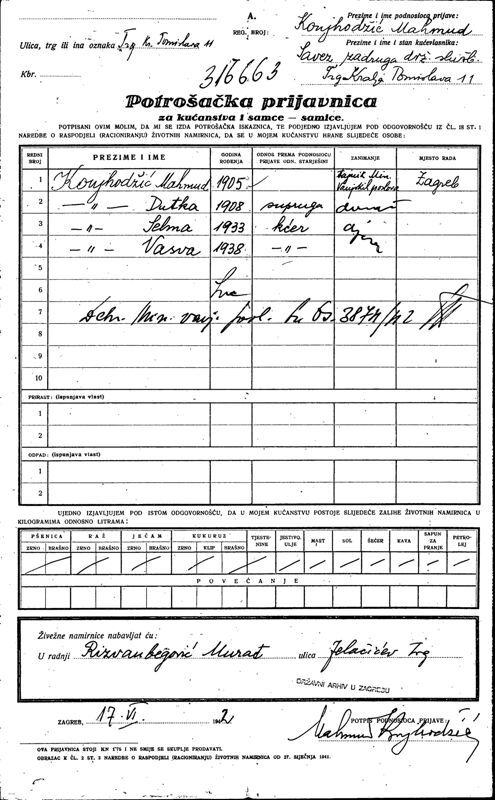 A.
REG. BROJ:
316663
Ulica, trg ili ina oznaka Trg Kr. Tomislava 11
Kbr.
Prezime i ime podnosioca prijave:
Konjhodžić Mahmud
Prezime i ime i stan kućevlasnika:
Savez zadruga drž. služb.
Trg Kralja Tomislava 11
Potrošačka prijavnica
za kućanstva i samce — samice.
POTPISANI OVIM MOLIM, DA MI SE IZDA POTROŠAČKA ISKAZNICA, TE PODJEDNO IZJAVLJUJEM POD ODGOVORNOŠĆU IZ ČL. 18 ST. 1
NAREDBE O RASPODJELI (RACIONIRANJU) ŽIVOTNIH NAMIRNICA, DA SE U MOJEM KUĆANSTVU HRANE SLIJEDEĆE OSOBE:
REDNI BROJ PREZIME I IME GODINA ROĐENJA ODNOS PREMA PODNOSIOCU PRIJAVE ODN. STARJEŠINI ZANIMANJE MJESTO RADA
1 Konjhodžić Mahmud 1905 Min. Vanjskih poslova Zagreb
2 -"- Dutka 1908 supruga
3 -"- Selma 1933 kćer
4 -"- Vasva 1938 -"-
5
6
7 Min. vanj. posl. 3874/42
8
9
10
PRIRAST: (ispunjava vlast)
1
2
OTPAD: (ispunjava vlast)
1
2
UJEDNO IZJAVLJUJEM POD ISTOM ODGOVORNOŠĆU, DA U MOJEM KUĆANSTVU POSTOJE SLIJEDEĆE ZALIHE ŽIVOTNIH NAMIRNICA U
KILOGRAMIMA ODNOSNO LITRAMA:
PŠENICA RAŽ JEČAM KUKURUZ TJESTENINE JESTIVO ULJE MAST SOL ŠEĆER KAVA SAPUN ZA PRANJE PETROLEJ
ZRNO BRAŠNO ZRNO BRAŠNO ZRNO BRAŠNO ZRNO KLIP BRAŠNO
POVEĆANJE
Živežne namirnice nabavljat ću:
U radnji Rizvanbegović Murat ulica Jelačićev Trg
DRŽAVNI ARHIV U ZAGREBU
ZAGREB, 17. VI. 1942
POTPIS PODNOSIOCA PRIJAVE:
Mahmud Konjhodžić
OVA PRIJAVNICA STOJI KN 1.75 I NE SMIJE SE SKUPLJE PRODAVATI.
OBRAZAC K ČL. 2 ST. 3 NAREDBE O RASPODJELI (RACIONIRANJU) ŽIVOTNIH NAMIRNICA OD 27. SIJEČNJA 1941.